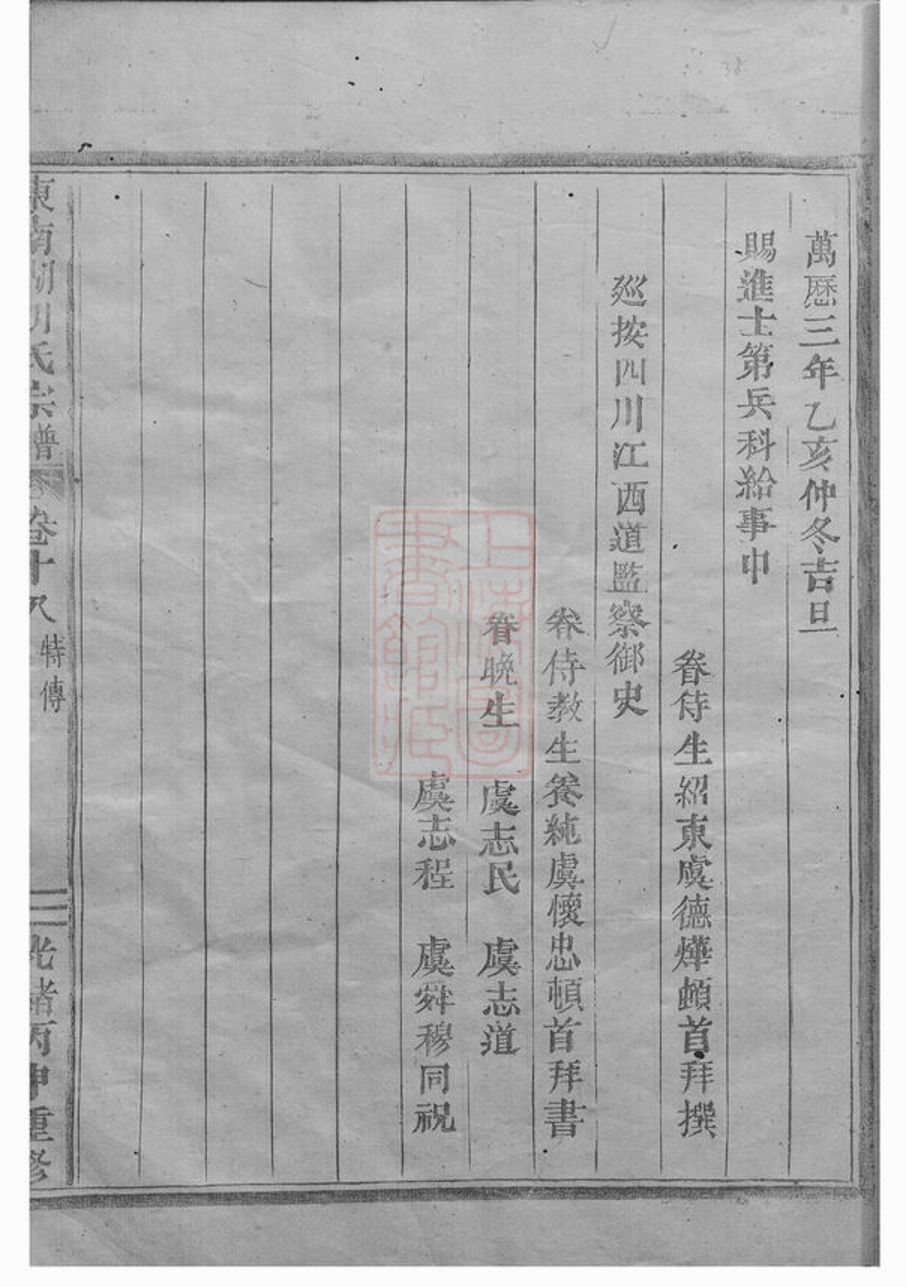 萬曆三年乙亥仲冬吉旦
賜進士第兵科給事中
眷侍生紹東虞德燁頓首拜撰
廵按四川江西道監察御史
眷侍教生養純虞懷忠頓首拜書
眷晩生 虞志民 虞志道
虞志程 虞舜穆同祝
東南湖川氏宗譜 卷十八 特傳 二 光緒丙申重修
上海圖書館藏